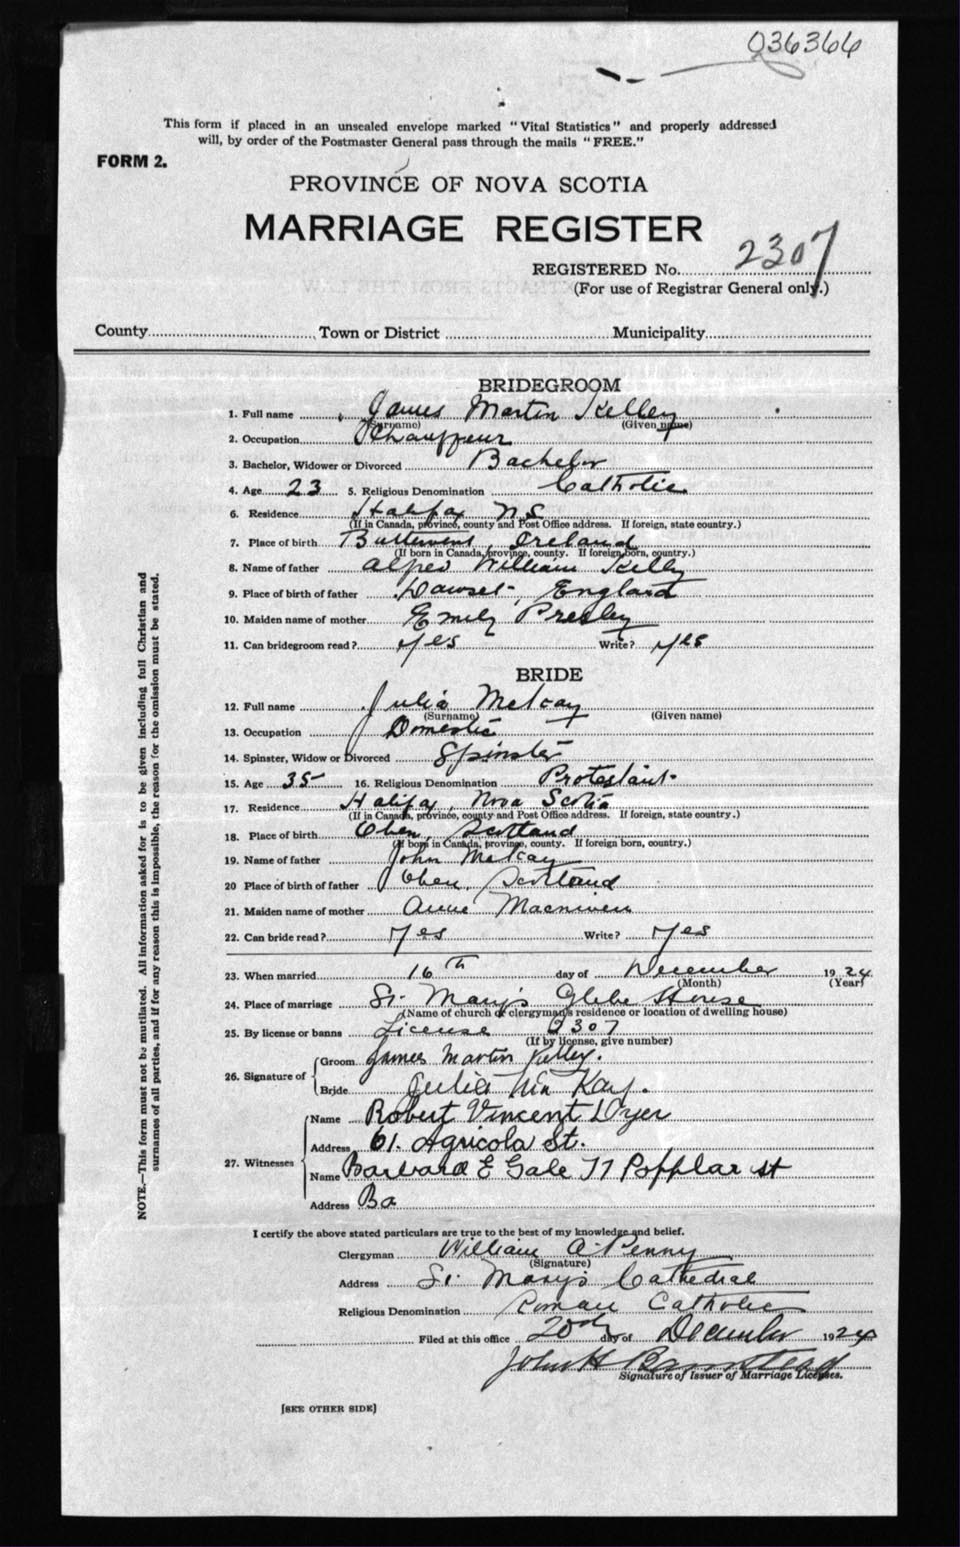 036366
This form if placed in an unsealed envelope marked "Vital Statistics" and properly addressed
will, by order of the Postmaster General pass through the mails "FREE."
FORM 2.
PROVINCE OF NOVA SCOTIA
MARRIAGE REGISTER
REGISTERED No. 2307
(For use of Registrar General only.)
County Town or District Municipality
BRIDEGROOM
1. Full name James Martin Kelley
(Surname) (Given name)
2. Occupation Chauffeur
3. Bachelor, Widower or Divorced Bachelor
4. Age 23 5. Religious Denomination Catholic
6. Residence Halifax N.S.
(If in Canada, province, county and Post Office address. If foreign, state country.)
7. Place of birth Ireland
(If born in Canada, province, county. If foreign born, country.)
8. Name of father Alfred William Kelly
9. Place of birth of father England
10. Maiden name of mother Emily Presley
11. Can bridegroom read? Yes Write? Yes
BRIDE
12. Full name Julia McKay
(Surname) (Given name)
13. Occupation Domestic
14. Spinster, Widow or Divorced Spinster
15. Age 35 16. Religious Denomination Protestant
17. Residence Halifax, Nova Scotia
(If in Canada, province, county and Post Office address. If foreign, state country.)
18. Place of birth Oben, Scotland
(If born in Canada, province, county. If foreign born, country.)
19. Name of father John McKay
20 Place of birth of father Oben, Scotland
21. Maiden name of mother Anne Macniven
22. Can bride read? Yes Write? Yes
23. When married 16th day of December 1924
(Month) (Year)
24. Place of marriage St. Mary's Glebe House
(Name of church or clergyman's residence or location of dwelling house)
25. By license or banns License 2307
(If by license, give number)
26. Signature of Groom James Martin Kelley.
Bride Julia McKay.
27. Witnesses Name Robert Vincent Dyer
Address 61. Agricola St.
Name Barbara E Gale 77 Popplar st
Address Ba
I certify the above stated particulars are true to the best of my knowledge and belief.
Clergyman William A. Penny
(Signature)
Address St. Mary's Cathedral
Religious Denomination Roman Catholic
Filed at this office 20th day of December 1924
John H Barnstead
Signature of Issuer of Marriage Licenses.
[SEE OTHER SIDE]
NOTE.—This form must not be mutilated. All information asked for is to be given including full Christian and
surnames of all parties, and if for any reason this is impossible, the reason for the omission must be stated.